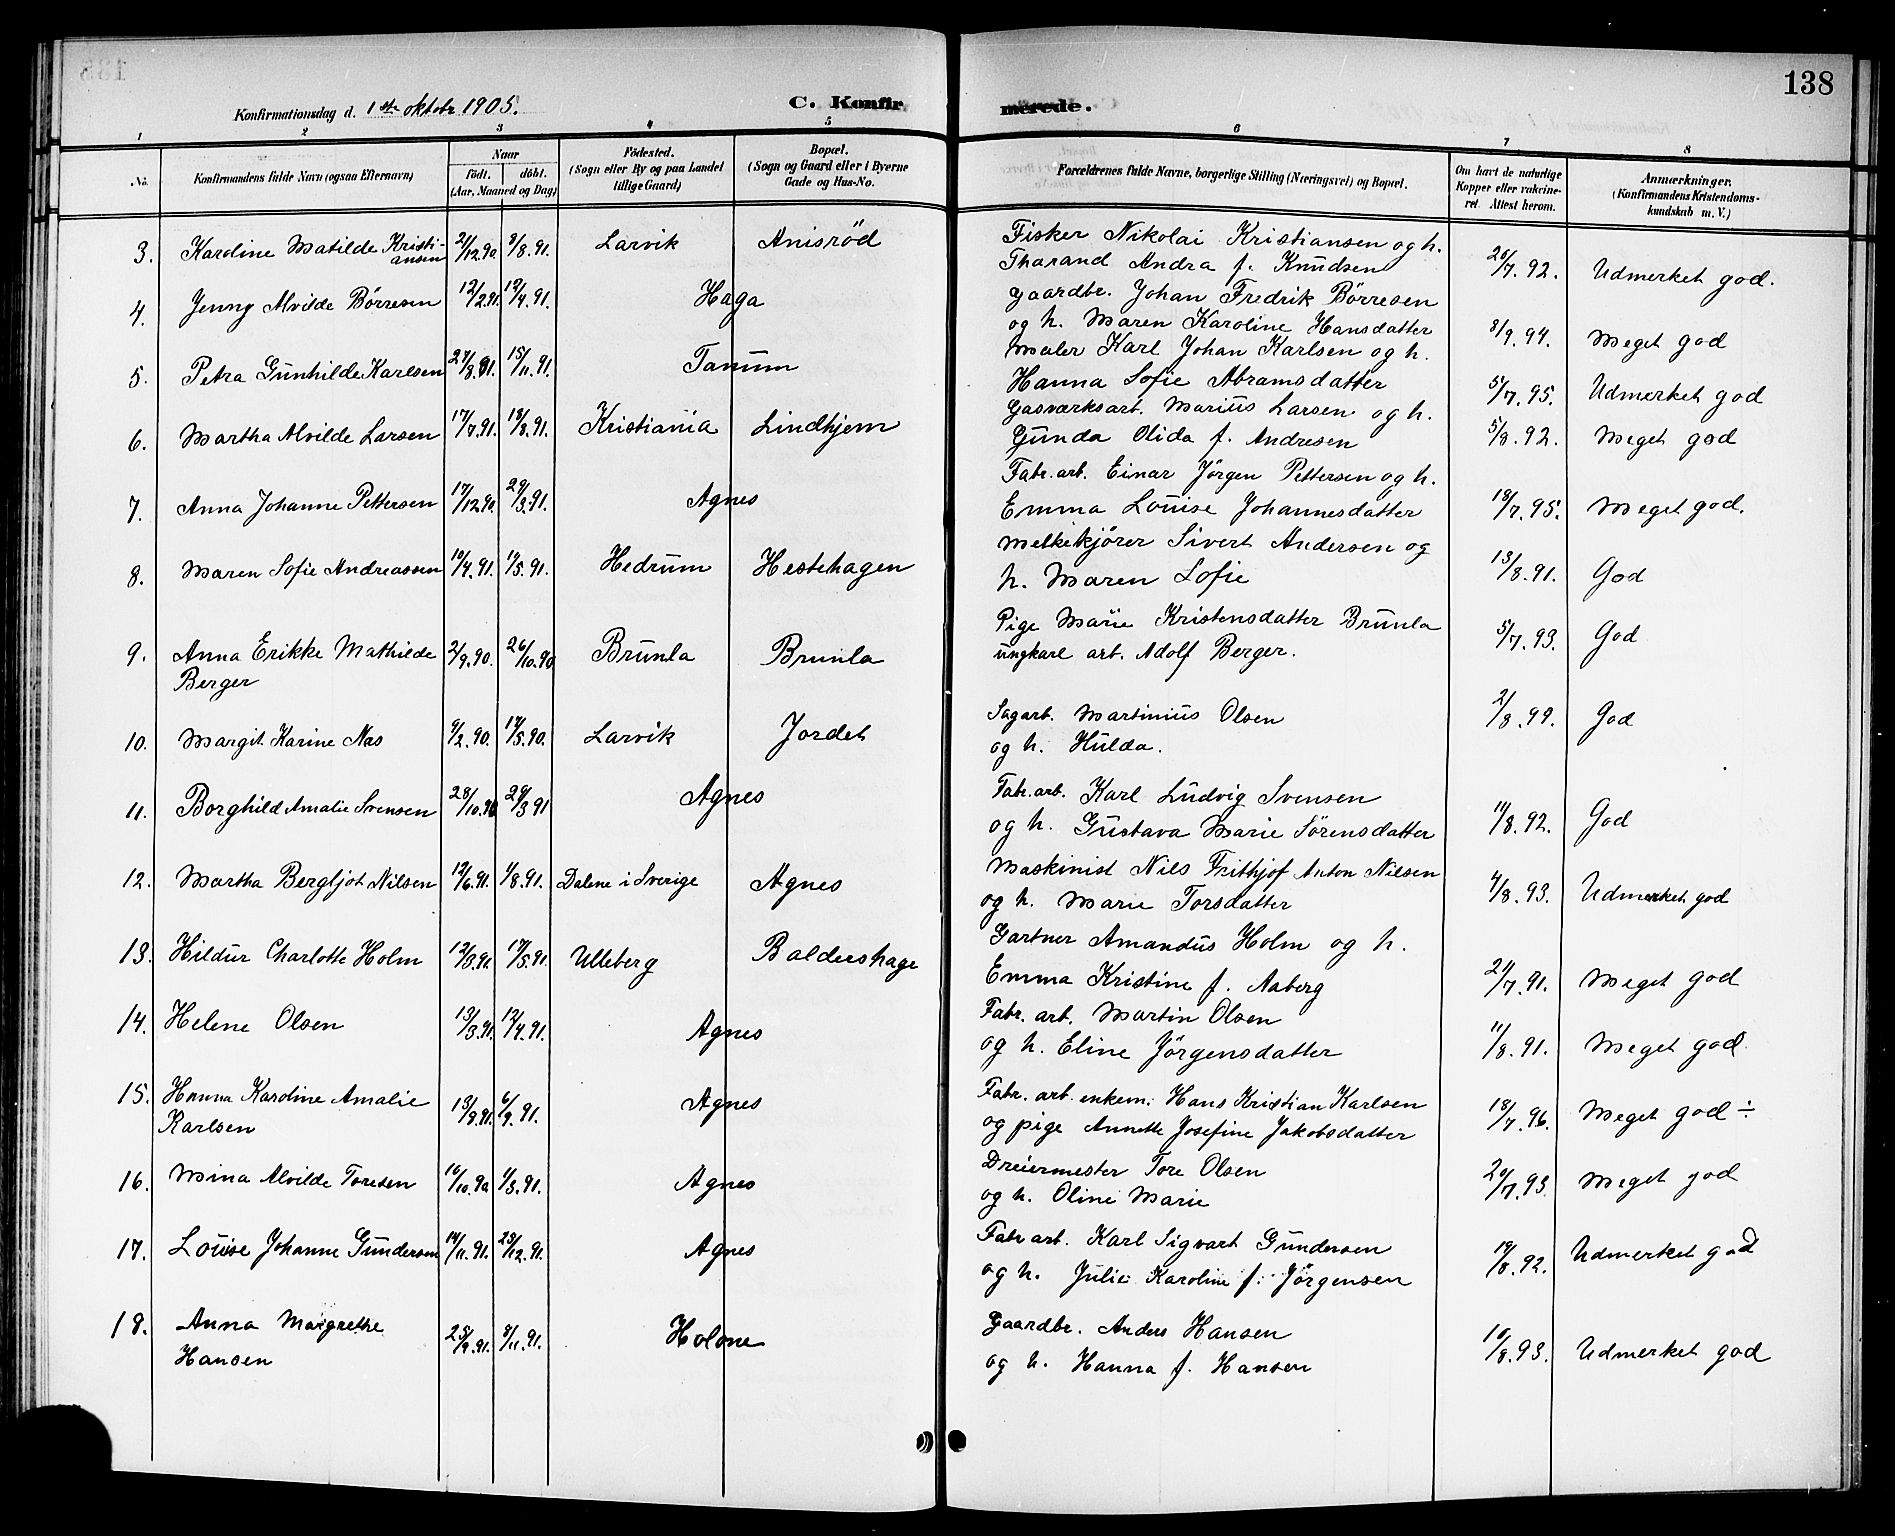 138
Konfirmationsdag d. 1ste oktobr 1905.
C. Konfirmerede.
1 2 3 4 5 6 7 8
No. Konfirmandens fulde Navn (ogsaa Efternavn) Naar födt. döbt. (Aar, Maaned og Dag) Födested. (Sogn eller By og paa Landet tillige Gaard) Bopæl. (Sogn og Gaard eller i Byerne Gade og Hus-No. Forældrenes fulde Navne, borgerlige Stilling (Næringsvei) og Bopæl. Om havt de naturlige Kopper eller vakcineret. Attest herom. Anmærkninger. (Konfirmandens Kristendomskundskab m. V.)
3. Karoline Matilde Kristiansen 21/12.90. 8/8.91. Larvik Anisröd Fisker Nikolai Kristiansen og h.
Tharand Andra f. Knudsen 26/7.92. Udmerket god.
4. Jenny Alvilde Börresen 12/2.91. 12/4.91. Haga Gaardbr. Johan Fredrik Börresen
og h. Maren Karoline Hansdatter 8/9.94. Meget god
5. Petra Gunhilde Karlsen 27/8.91. 15/11.91. Tanum Maler Karl Johan Karlsen og h.
Hanna Sofie Abramsdatter 5/7.95. Udmerket god
6. Martha Alvilde Larsen 17/7.91. 18/8.91. Kristiania Lindhjem Gasværksarb. Marius Larsen og h.
Gunda Olida f. Andresen 5/8.92. Meget god
7. Anna Johanne Pettersen 17/12.90. 29/3.91. Agnes Fabr. arb. Einar Jörgen Pettersen og h.
Emma Louise Johannesdatter 18/7.95. Meget god.
8. Maren Sofie Andreassen 10/4.91. 17/5.91. Hedrum Hestehagen Melkekjører Sivert Andersen og
h. Maren Sofie 13/8.91. God
9. Anna Erikke Mathilde
Berger 2/9.90. 26/10.90 Brunla Brunla Pige Marie Kristensdatter Brunla
ungkarl arb. Adolf Berger. 5/7.93. God
10. Margit Karine Nas 9/2.90. 17/5.90. Larvik Jordet Sagarb. Martinius Olsen
og h. Hulda. 2/8.99. God
11. Borghild Amalie Svensen 28/10.90 29/3 91 Agnes Fabr. arb. Karl Ludvig Svensen
og h. Gustava Marie Sörensdatter 11/8.92. God
12. Martha Bergljot Nilsen 12/6.91. 1/8.91. Dalene i Sverige Agnes Maskinist Nils Frithjof Anton Nilsen
og h. Marie Torsdatter 4/8.93. Udmerket god
13. Hildur Charlotte Holm 12/3.91. 17/5.91. Ulleberg Baldershage Gartner Amandus Holm og h.
Emma Kristine f. Aaberg 21/7.91. Meget god
14. Helene Olsen 13/3.91. 12/4.91. Agnes Fabr. arb. Martin Olsen
og h. Eline Jörgensdatter 11/8.91. Meget god.
15. Hanna Karoline Amalie
Karlsen 13/8.91. 6/9.91. Agnes Fabr. arb. enkem. Hans Kristian Karlsen
og pige Annette Josefine Jakobsdatter 18/7.96. Meget god ÷
16. Mina Alvilde Toresen 16/10.90 1/3.91. Agnes Dreiermester Tore Olsen
og h. Oline Marie 20/7.93. Meget god
17. Louise Johanne Gundersen 14/11.91. 23/12.91. Agnes Fabr arb. Karl Sigvart Gundersen
og h. Julie Karoline f. Jörgensen 19/8.92. Udmerket god
18. Anna Margrethe
Hansen 25/9.91. 8/11.91. Holone Gaardbr. Anders Hansen
og h. Hanna f. Hansen 16/8.93. Udmerket god